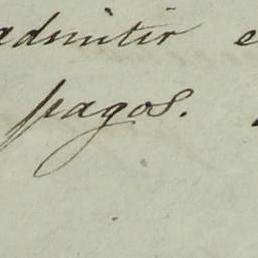 admitir e
pagos.